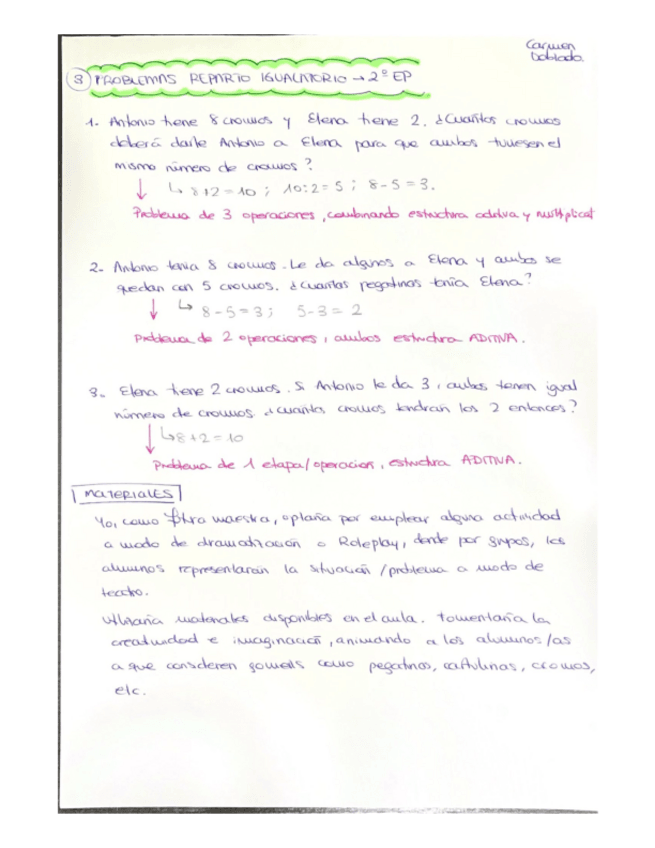 Carmen
Doblado.
3 PROBLEMAS REPARTO IGUALITORIO → 2º EP
1. Antonio tiene 8 cromos y Elena tiene 2. ¿Cuantos cromos
deberá darle Antonio a Elena para que ambos tuviesen el
mismo número de cromos?
↳ 8+2=10 ; 10:2=5 ; 8-5=3.
Problema de 3 operaciones, combinando estructura aditiva y multiplicat
2. Antonio tenia 8 cromos. Le da algunos a Elena y ambos se
quedan con 5 cromos. ¿cuantas pegatinas tenía Elena?
↳ 8-5=3 ; 5-3=2
Problema de 2 operaciones, ambos estructura ADITIVA.
3. Elena tiene 2 cromos. Si Antonio le da 3, ambos tienen igual
número de cromos ¿cuantos cromos tendrán los 2 entonces?
↳ 8+2=10
Problema de 1 etapa/operacion, estructura ADITIVA.
MATERIALES
Yo, como maestra, optaría por emplear alguna actividad
a modo de dramatización o Roleplay, donde por grupos, los
alumnos representarán la situación/problema a modo de
teatro.
Utilizaría materiales disponibles en el aula. Fomentaría la
creatividad e imaginación, animando a los alumnos/as
a que consideren gomets como pegatinas, cartulinas, cromos,
etc.